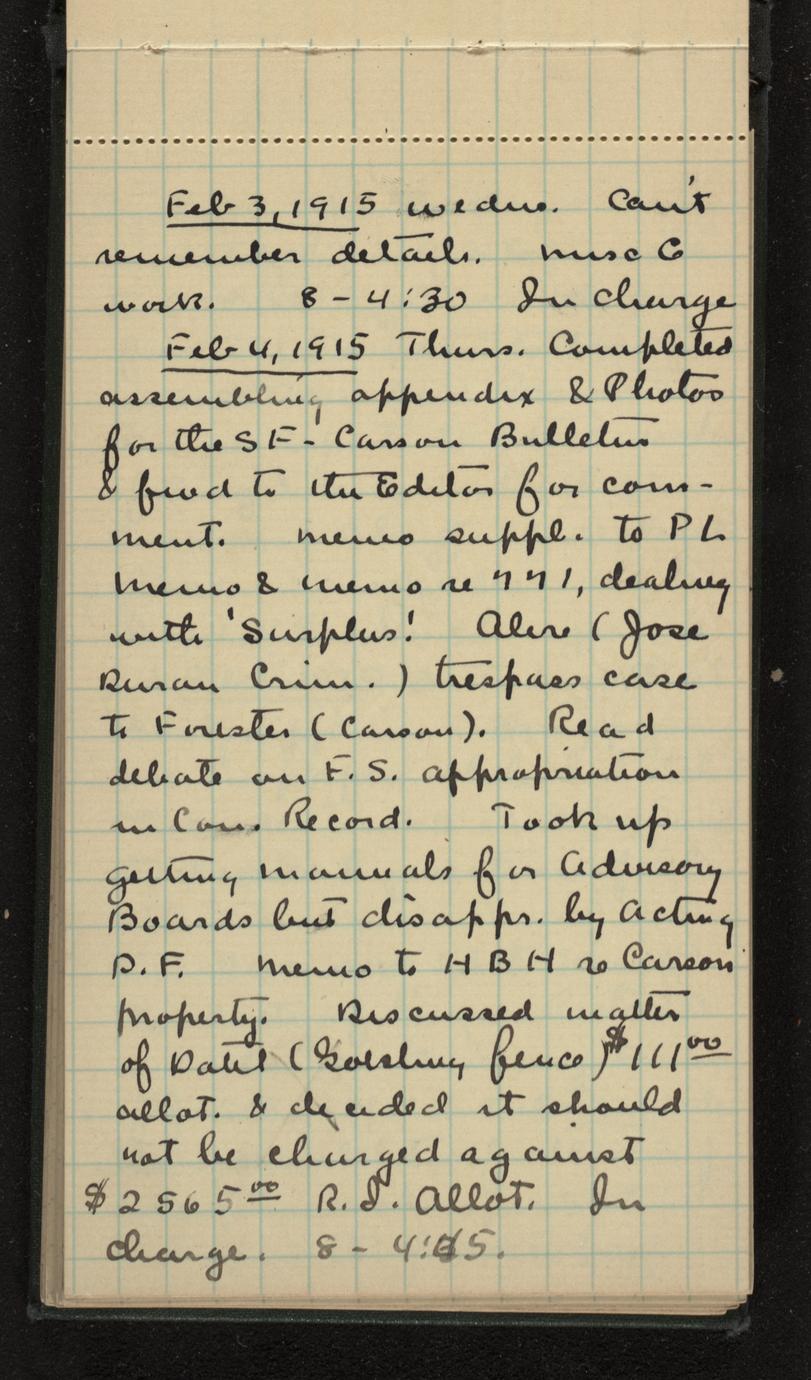 Feb 3, 1915 Wednes. Can't
remember details. Misc G
work. 8 - 4:30 In charge
Feb 4, 1915 Thurs. Completed
assembling appendix & Photos
for the SF - Carson Bulletin
& fwd to the Editor for com-
ment. Memo suppl. to PL
Memo & memo re 771, dealing
with 'Surplus! (Jose
Duran Crim.) trespass case
to Forester (Carson). Read
debate on F. S. appropriation
in Con. Record. Took up
getting manuals for Advisory
Boards but disappr. by Acting
D. F. Memo to H B H re Carson
property. Discussed matter
of Datil (fence) $111 00
allot. & decided it should
not be charged against
$2565 00 R. I. Allot. In
charge. 8 - 4:45.